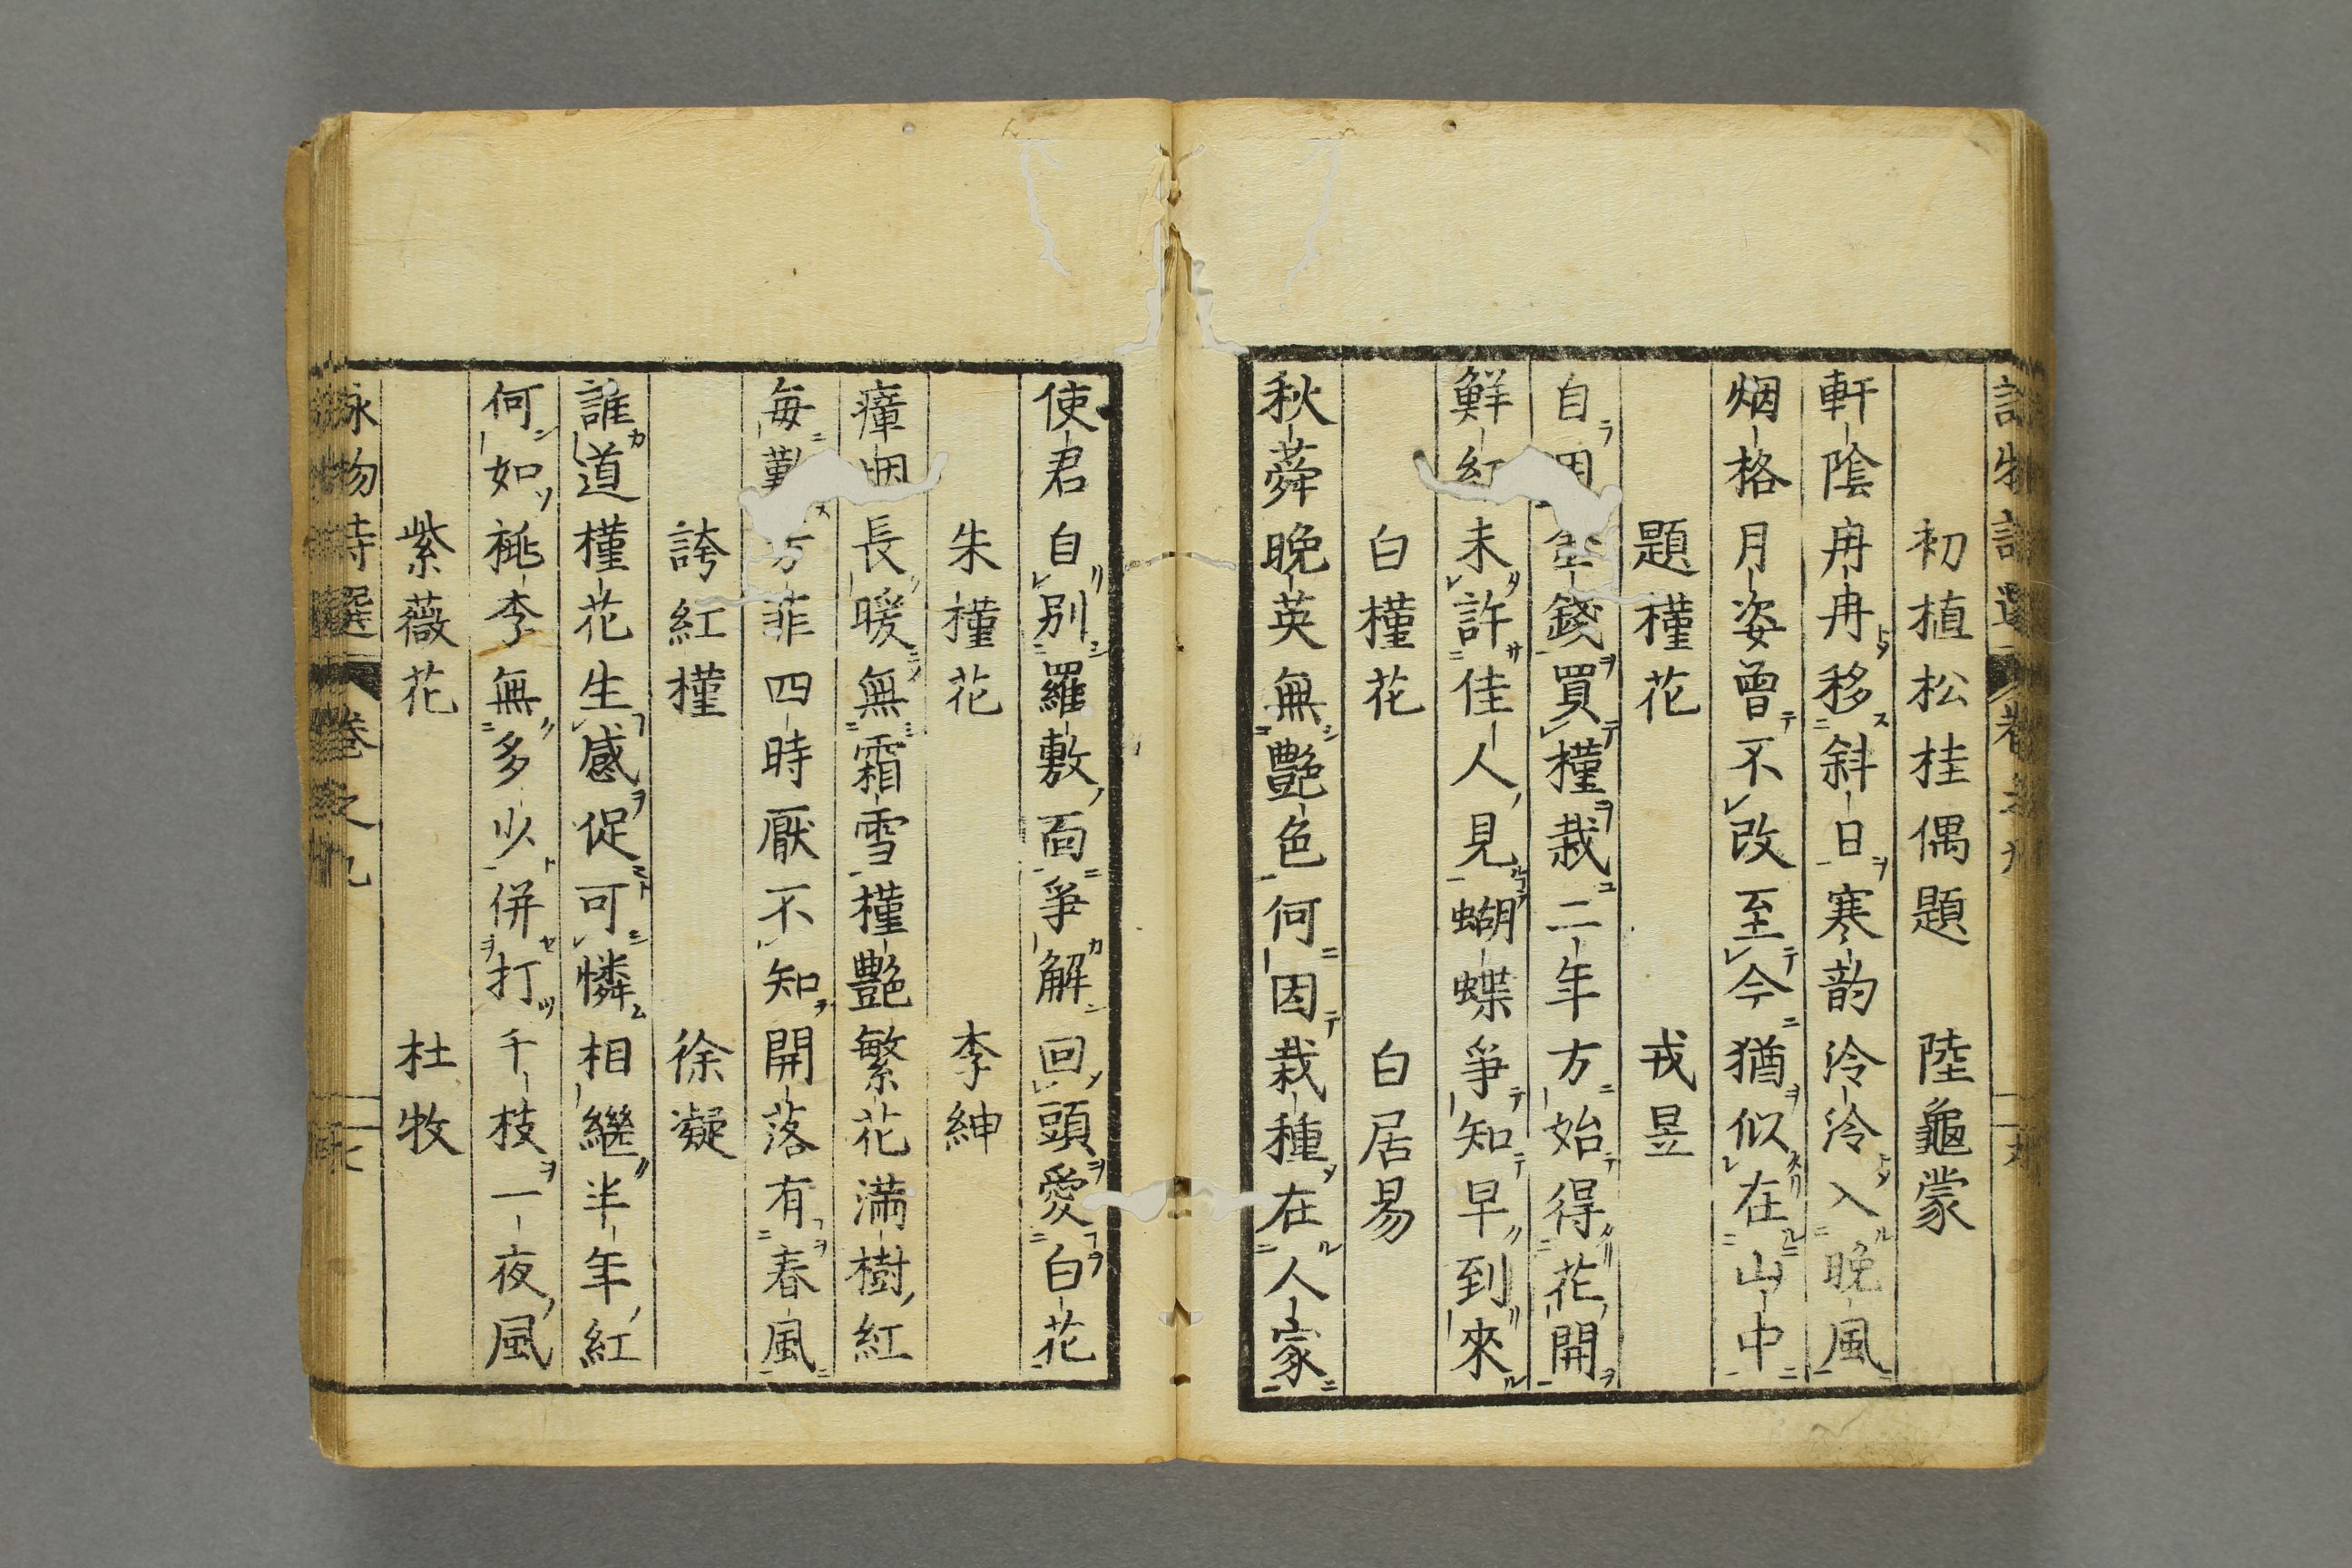 初植松桂偶題 陸龜蒙
軒陰冉冉移斜日寒韵泠泠入晚風
烟格月姿曾不改至今猶似在山中
題槿花 戎昱
自用金錢買槿栽二年方始得花開
鮮紅未許佳人見蝴蝶爭知早到來
白槿花 白居易
秋蕣晚英無艷色何因栽種在人家
使君自別羅敷面爭解回頭愛白花
朱槿花 李紳
瘴烟長暖無霜雪槿艷繁花満樹紅
每歎芳菲四時厭不知開落有春風
誇紅槿 徐凝
誰道槿花生感促可憐相繼半年紅
何如桃李無多少併打千枝一夜風
紫薇花 杜牧
詠物詩選 卷之九